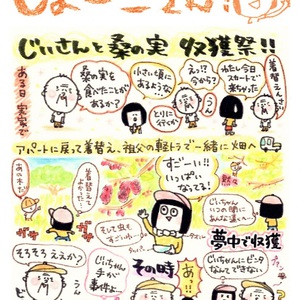 じいさんと桑の実 収穫祭!!
ある日 実家で
桑の実を
食べたことが
あるか?
小さい頃に
あるような
とりに
行くか
えっ!?
今から?
わたし今日
スカートで
来ちゃった
着替えんさい
アパートに戻って着替え、祖父の軽トラで一緒に畑へ
あの木だ
着替えて
よかった
ガサ
ガサ
すごーい!!
いっぱい
なってる!
そして虫も
すごいね
じいちゃん
いつの間に
こんな
夢中で収穫
そろそろ ええか?
じいちゃん
手が
事件よ
その時
あっ!!
じいちゃんに
なんて